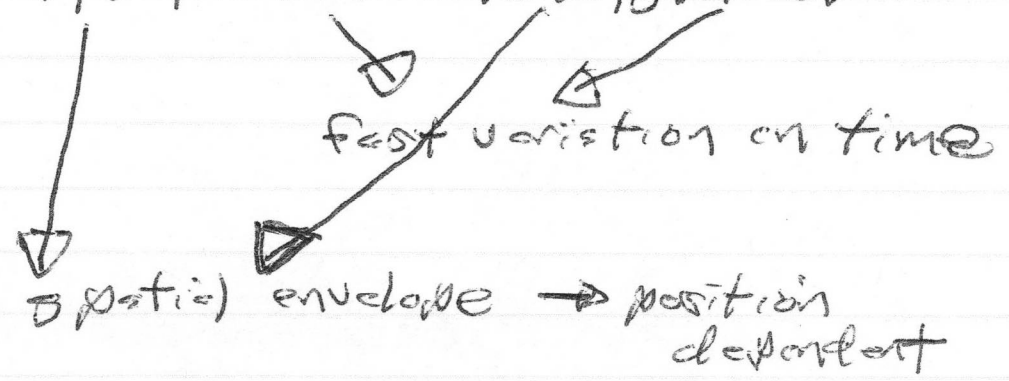 fast variation on time
spatial envelope → position
dependent